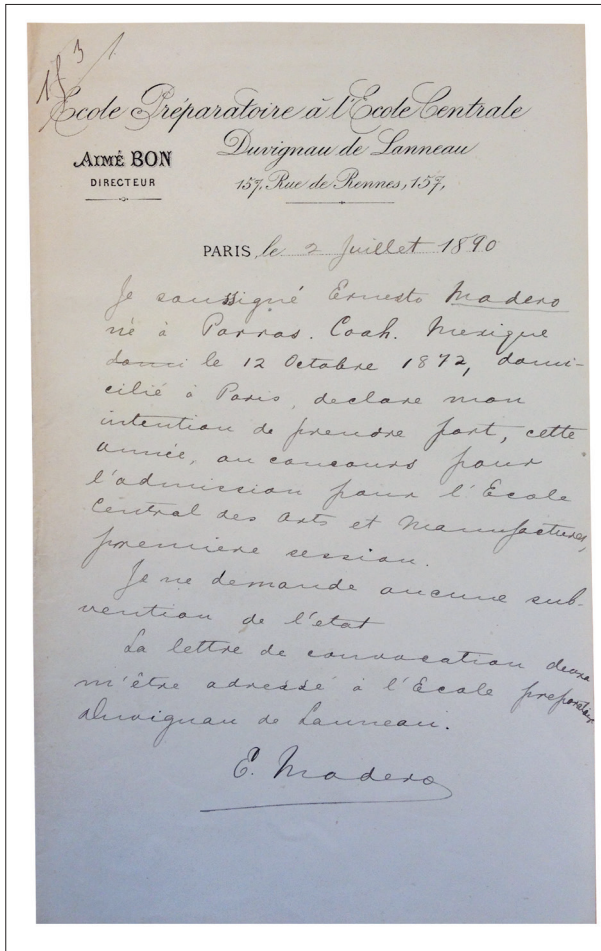 1531
Ecole Préparatoire à l'Ecole Centrale
Duvignau de Lanneau
AIMÉ BON
DIRECTEUR
157, Rue de Rennes, 157,
PARIS, le 2 Juillet 1890
Je soussigné Ernesto Madero
né à Parras. Coah. Mexique
domi le 12 Octobre 1872, domi-
cilié à Paris, declare mon
intention de prendre part, cette
année, au concours pour
l'admission pour l'Ecole
Central des Arts et Manufactures,
première session.
Je ne demande aucune sub-
vention de l'état
La lettre de convocation devra
m'être adressé à l'Ecole preparatoire
Duvignau de Lanneau.
E. Madero